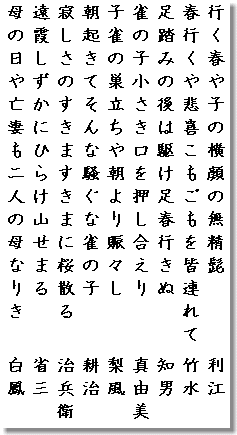 行く春や子の横顔の無精髭　利江
春行くや悲喜こもごもを皆連れて　竹水
足踏みの後は駆け足春行きぬ　知男
雀の子小さき口を押し合えり　真由美
子雀の巣立ちや朝より賑々し　梨風
朝起きてそんな騒ぐな雀の子　耕治
寂しさのすきますきまに桜散る　治兵衛
遠霞しずかにひらけ山せまる　省三
母の日や亡妻も二人の母なりき　白鳳